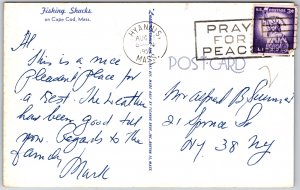 Fishing Shacks
on Cape Cod, Mass.
HYANNIS,
AUG
MASS.
PRAY
FOR
PEACE
POST CARD
Hi,
This is a nice
Pleasant place for
a Rest. The Weather
has been good till
now. Regards to the
family
Mark
Mr Alfred B
21 Spruce St
NY 38 NY